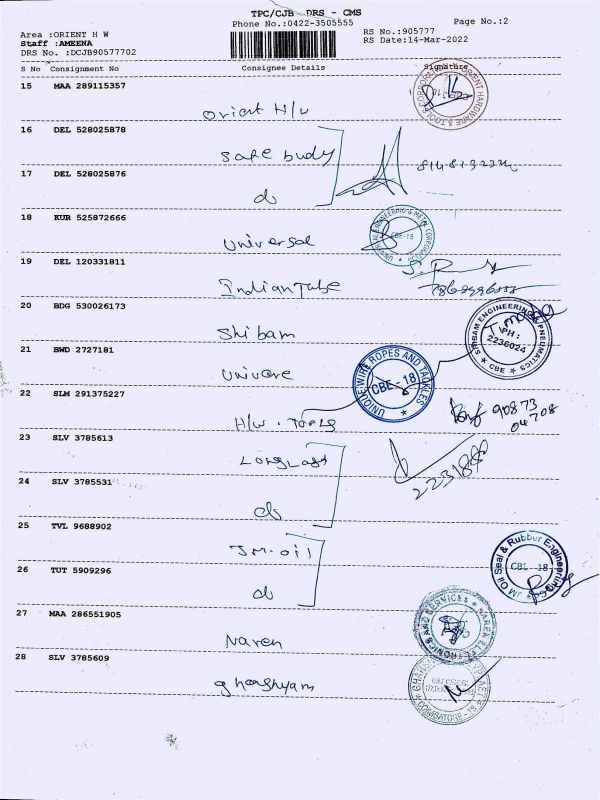 TPC/CJB DRS - CMS
Phone No.:0422-3505555
Page No.:2
Area :ORIENT H W
RS No.:905777
Staff :AMEENA
RS Date:14-Mar-2022
DRS No. :DCJB90577702
S No Consignment No Consignee Details Signature
15 MAA 289115357
Orient H/w
16 DEL 528025878
Safe budy
17 DEL 528025876
do
18 KUR 525872666
Universal
CBE-18
19 DEL 120331811
Indian Tube
20 BDG 530026173
Shibam
SHIBAM ENGINEERING & PNEUMATICS
PH:
2236024
CBE
21 BWD 2727181
Univere
UNIQUE WIRE ROPES AND TACKLES
CBE-18
22 SLM 291375227
H/w. Tools
90873
04708
23 SLV 3785613
Longlast
24 SLV 3785531
do
25 TVL 9688902
JM-oil
JM Oil Seal & Rubber Engineering
CBE-18
26 TUT 5909296
do
27 MAA 286551905
Naren
28 SLV 3785609
ghanshyam
COIMBATORE-18